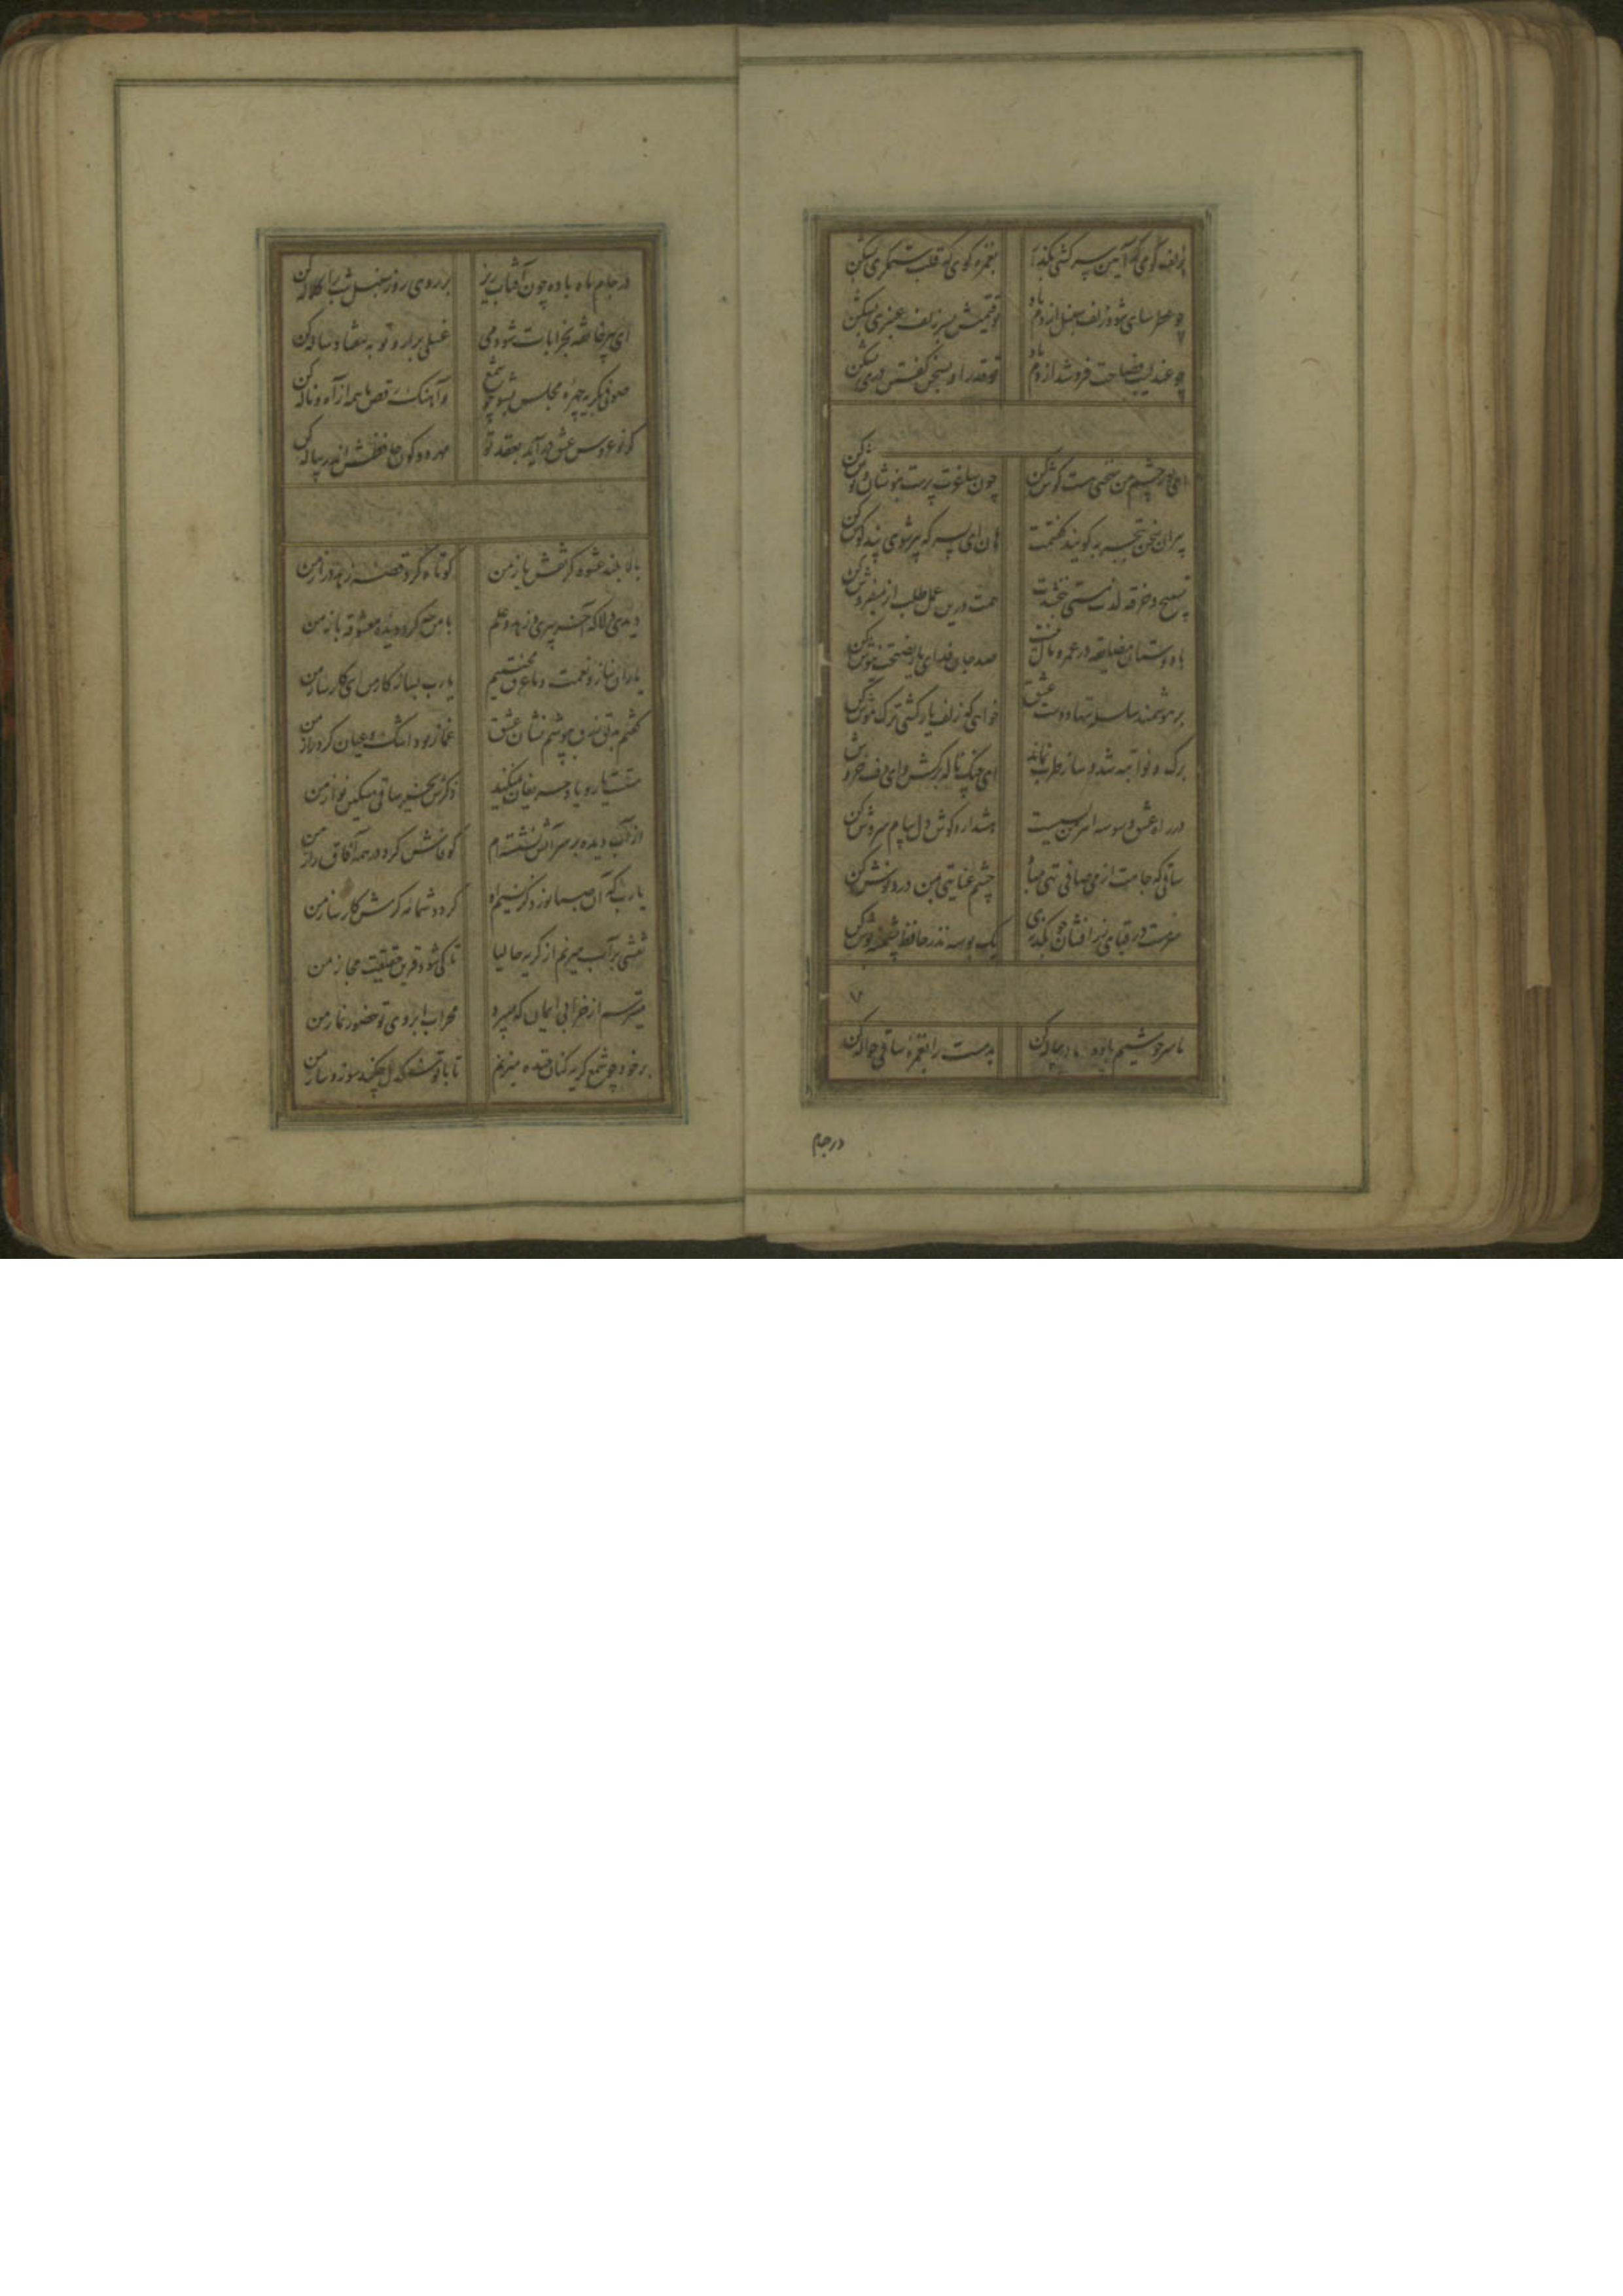 بزلف گوی که آیین سرکشی بگذار
بغمزه گوی که قلب ستمگری بشکن
چو عطرسای شود زلف سنبل از دم باد
تو قیمتش بسر زلف عنبری بشکن
چو عندلیب فصاحت فروشد از دم باد
تو قدر او بسخن گفتن دری بشکن
ای نور چشم من سخنی هست گوش کن
چون ساغرت پرست بنوشان و نوش کن
پیران سخن تجربه گویند گفتمت
هان ای پسر که پیر شوی پند گوش کن
تسبیح و خرقه لذت مستی نبخشدت
همت درین عمل طلب از میفروش کن
با دوستان مضایقه در عمر و مال نیست
صد جان فدای یار نصیحت نیوش کن
بر هوشمند سلسله ننهاد دست عشق
خواهی که زلف یار کشی ترک هوش کن
برگ و نوا تبه شد و ساز طرب نماند
ای چنگ ناله برکش و ای دف خروش
در راه عشق وسوسه اهرمن بسیست
هشدار و گوش دل بپیام سروش کن
ساقی که جامت از می صافی تهی مباد
چشم عنایتی بمن درد نوش کن
سرمست در قبای زرافشان چو بگذری
یک بوسه نذر حافظ پشمینه پوش کن
۷
ما سرخوشیم باده ما در پیاله کن
بدمست را بغمزه ساقی حواله کن
در جام
در جام ماه باده چون آفتاب ریز
بر روی روز سنبل شب را کلاله کن
ای پیر خانقه بخرابات شو دمی
غسلی برآر و توبه هفتاد ساله کن
صوفی بگریه چهره مجلس بشو چو شمع
و آهنگ رقص ما همه از آه و ناله کن
گر نو عروس عشق درآید بعقد تو
مهر دو کون حافظش اندر پیاله کن
بالا بلند عشوه گر نقش باز من
کوتاه کرد قصه زهد دراز من
دیدی دلا که آخر پیری و زهد و علم
با من چه کرد دیده معشوقه باز من
یاران بناز و نعمت و ما غرق محنتیم
یا رب بساز کار من ای کارساز من
گفتم بدلق زرق بپوشم نشان عشق
غماز بود اشک و عیان کرد راز من
مستست یار و یاد حریفان نمیکند
ذکرش بخیر ساقی مسکین نواز من
از آب دیده بر سر آتش نشسته‌ام
کو فاش کرد در همه آفاق راز من
یا رب کی آن صبا بوزد کز نسیم او
گردد شمامه کرمش کارساز من
نقشی بر آب میزنم از گریه حالیا
تا کی شود قرین حقیقت مجاز من
میترسم از خرابی ایمان که میبرد
محراب ابروی تو حضور نماز من
بر خود چو شمع گریه کنان خنده میزنم
تا با تو سنگدل چکند سوز و ساز من